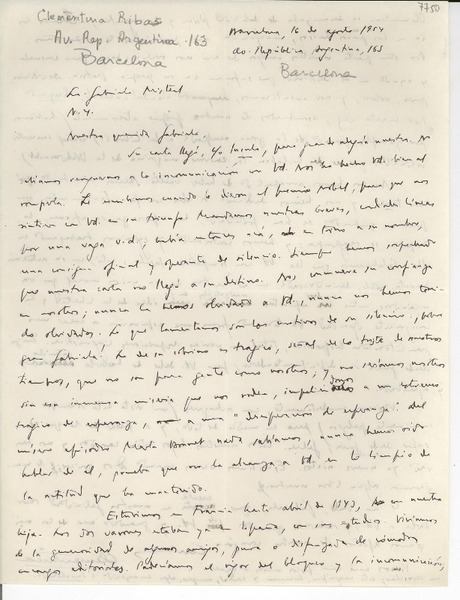 7750
Clementina Ribas
Av. Rep. Argentina - 163
Barcelona
Barcelona, 16 de agosto 1954
Av. República Argentina, 163
Barcelona
Sra. Gabriela Mistral
N.Y.
Nuestra querida Gabriela,
Su carta llegó, para grande alegría nuestra. No
a la incomunicación con Vd. Nos ha hecho Vd. bien al
romperla. Le escribimos cuando le dieron el premio Nobel, para que nos
sintiera con Vd. en su triunfo. Mandamos nuestras breves, cordiales líneas
por una vaga v.d.; había entonces acá, en torno a su nombre,
una consigna oficial y operante de silencio. Siempre hemos sospechado
que nuestra carta no llegó a su destino. Nos conmueve su confianza
en nosotros; nunca la hemos olvidado a Vd., nunca nos hemos
do olvidados. Lo que lamentamos son los motivos de su silencio, pobre
gran Gabriela! Lo de su sobrino es trágico, señal de lo triste de nuestros
tiempos, que no son para gente como nosotros; y no seríamos nosotros
sin esa inmensa miseria que nos rodea, a un
trágico de esperanza, a una "desesperación de esperanza". Del
mísero episodio Marta Brunet nada sabíamos, nunca hemos oído
hablar de él, prueba que no la alcanza a Vd. en lo limpio de
la actitud que ha mantenido.
Estuvimos en Francia hasta abril de 1943, con nuestra
hija. Los dos varones estaban ya en España, con sus estudios. Vivíamos
de la generosidad de algunos amigos, pura o disfrazada de cómodos
encargos editoriales. Padecíamos el rigor del bloqueo y la incomunicación,